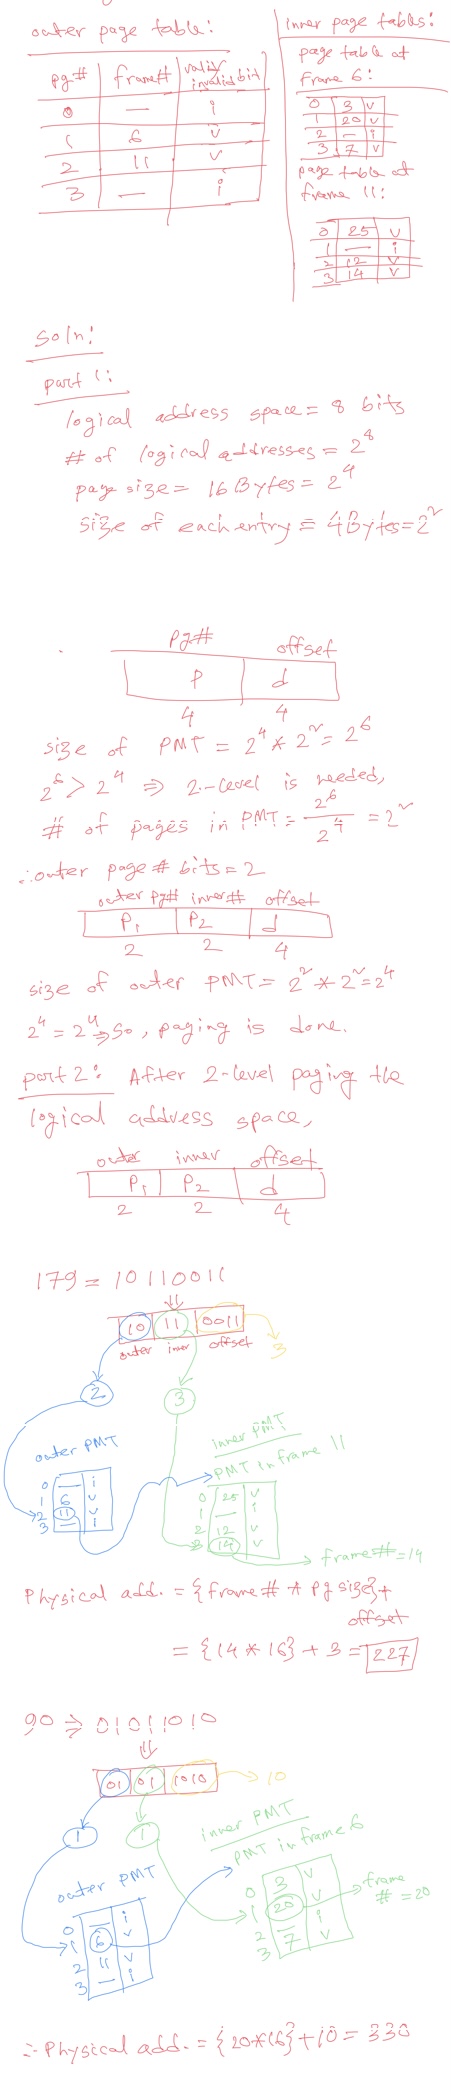 outer page table:
pg# frame# valid/invalid bit
0 — i
1 6 v
2 11 v
3 — i
inner page tables:
page table at
Frame 6:
0 3 v
1 20 v
2 — i
3 7 v
page table at
frame 11:
0 25 v
1 — i
2 12 v
3 14 v
Soln:
part 1:
logical address space = 8 bits
# of logical addresses = 2^8
page size = 16 Bytes = 2^4
size of each entry = 4 Bytes = 2^2
pg# offset
p d
4 4
size of PMT = 2^4 * 2^2 = 2^6
2^6 > 2^4 ⇒ 2-level is needed,
# of pages in PMT = 2^6 / 2^4 = 2^2
∴ outer page # bits = 2
outer pg# inner# offset
P1 P2 d
2 2 4
size of outer PMT = 2^2 * 2^2 = 2^4
2^4 = 2^4 ⇒ So, paging is done.
part 2: After 2-level paging the
logical address space,
outer inner offset
P1 P2 d
2 2 4
179 = 10110011
⇓
10 11 0011
outer inner offset
3
2 3
outer PMT
0 — i
1 6 v
2 11 v
3 — i
inner PMT
PMT in frame 11
0 25 v
1 — i
2 12 v
3 14 v
frame # = 14
Physical add. = {frame # * pg size} +
offset
= {14 * 16} + 3 = 227
90 ⇒ 01011010
⇓
01 01 1010
10
1 1
outer PMT
0 — i
1 6 v
2 11 v
3 — i
inner PMT
PMT in frame 6
0 3 v
1 20 v
2 — i
3 7 v
frame
# = 20
∴ Physical add. = {20*16} + 10 = 330